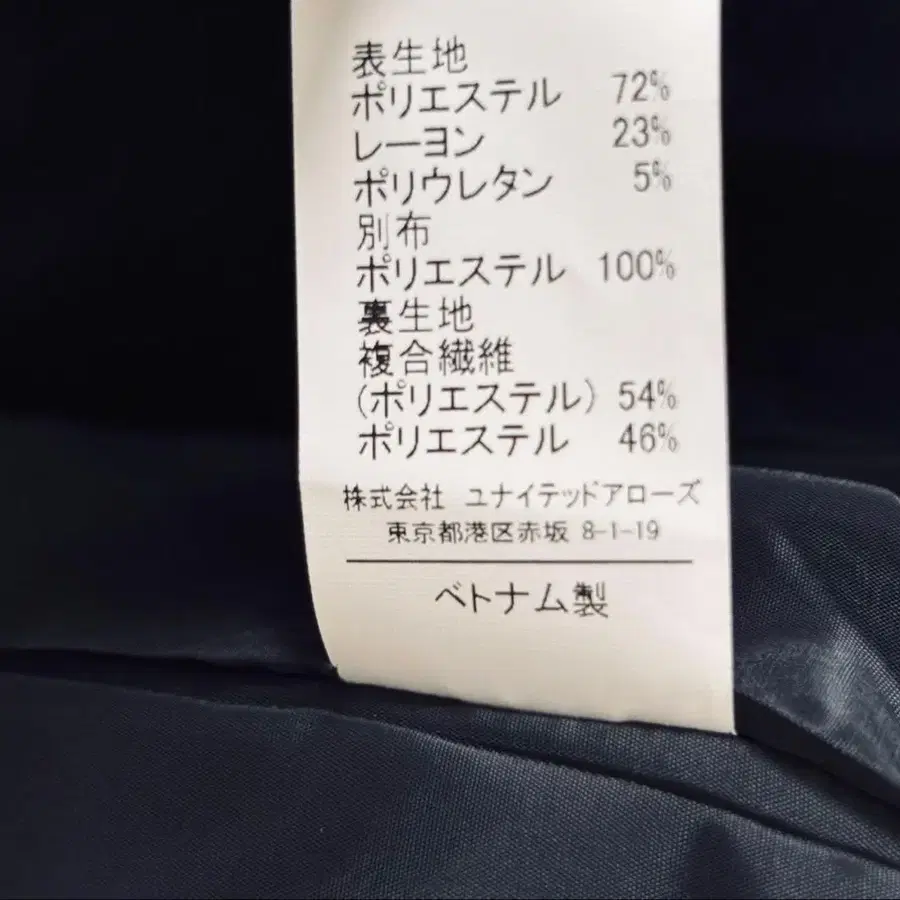 表生地
ポリエステル 72%
レーヨン 23%
ポリウレタン 5%
別布
ポリエステル 100%
裏生地
複合繊維
(ポリエステル) 54%
ポリエステル 46%
株式会社 ユナイテッドアローズ
東京都港区赤坂 8-1-19
ベトナム製